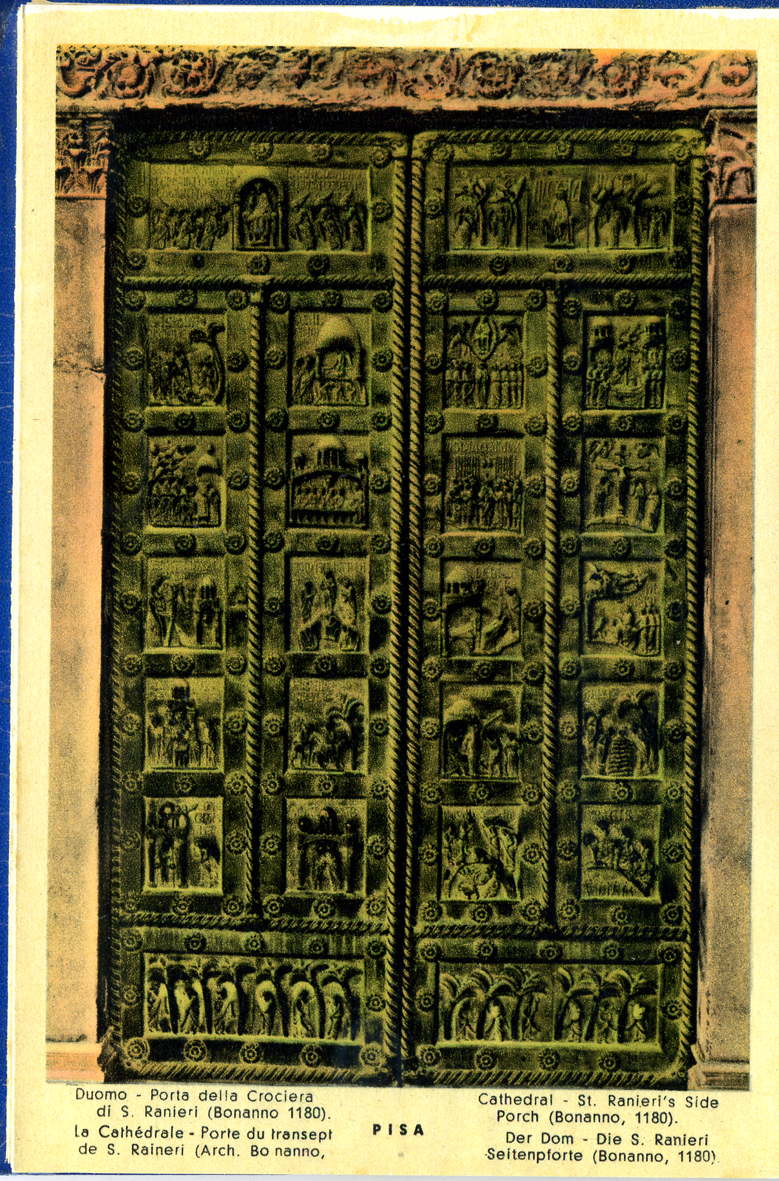 Duomo - Porta della Crociera
di S. Ranieri (Bonanno 1180).
La Cathédrale - Porte du transept
de S. Raineri (Arch. Bo nanno,
PISA
Cathedral - St. Ranieri's Side
Porch (Bonanno, 1180).
Der Dom - Die S. Ranieri
Seitenpforte (Bonanno, 1180).